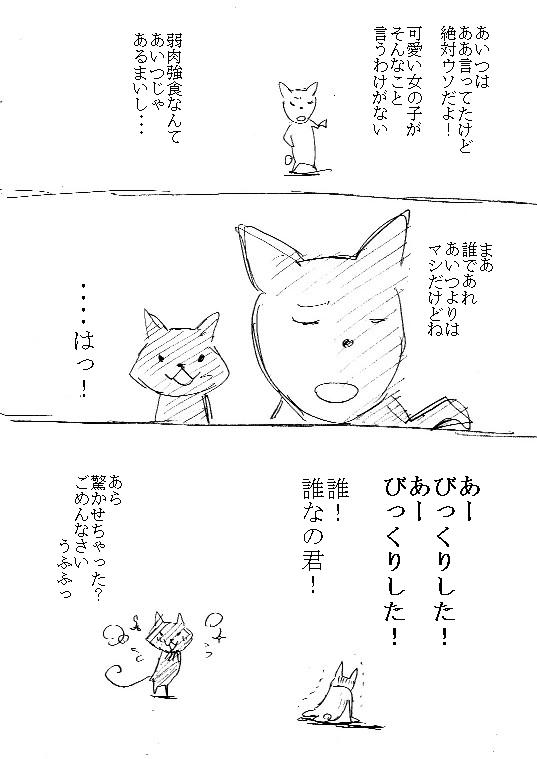 あいつは
ああ言ってたけど
絶対ウソだよ!
可愛い女の子が
そんなこと
言うわけがない
弱肉強食なんて
あいつじゃ
あるまいし・・・
まあ
誰であれ
あいつよりは
マシだけどね
・・・・はっ!
あー
びっくりした!
あー
びっくりした!
誰!
誰なの君!
あら
驚かせちゃった?
ごめんなさい
うふふっ